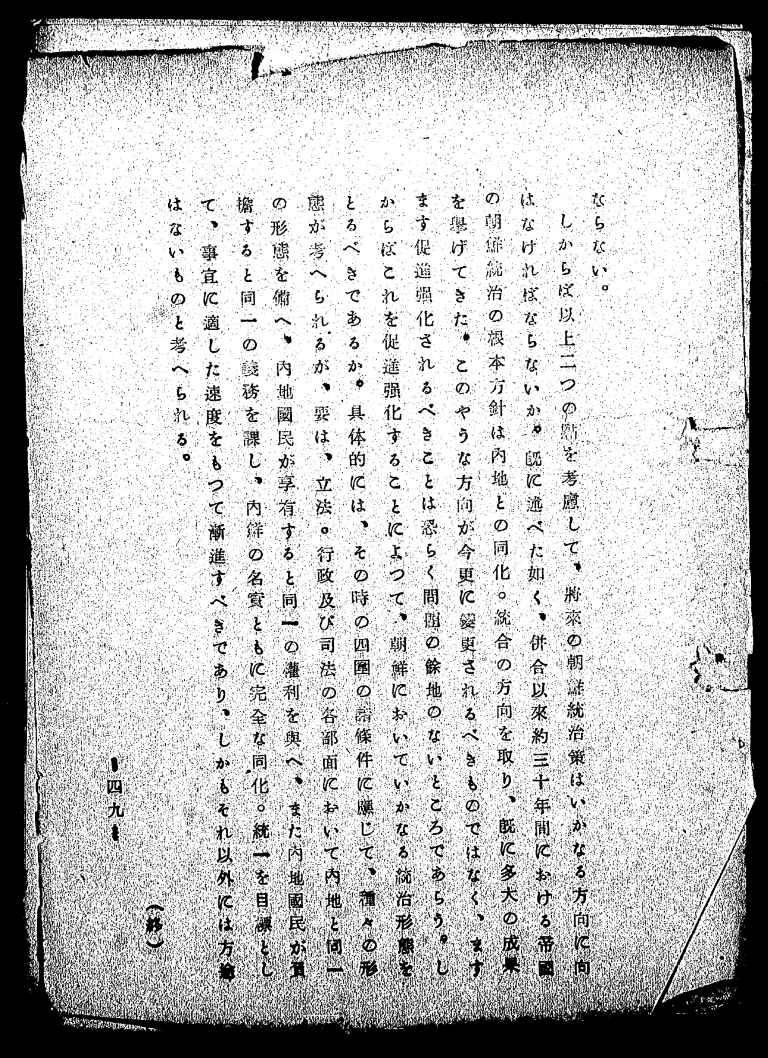 ならない。
しからば以上二つの點を考慮して、將來の朝鮮統治策はいかなる方向に向
はなければならないか。既に述べた如く、併合以來約三十年間における帝國
の朝鮮統治の根本方針は內地との同化。統合の方向を取り、既に多大の成果
を擧げてきた。このやうな方向が今更に變更されるべきものではなく、ます
ます促進强化されるべきことは恐らく問題の餘地のないところであらう。し
からばこれを促進强化することによつて、朝鮮においていかなる統治形態を
とるべきであるか。具体的には、その時の四圍の諸條件に應じて、種々の形
態が考へられるが、要は、立法。行政及び司法の各部面において內地と同一
の形態を備へ、內地國民が享有すると同一の權利を與へ、また內地國民が負
擔すると同一の義務を課し、內鮮の名實ともに完全な同化。統一を目標とし
て、事宜に適した速度をもつて漸進すべきであり、しかもそれ以外には方途
はないものと考へられる。
(終)
四九